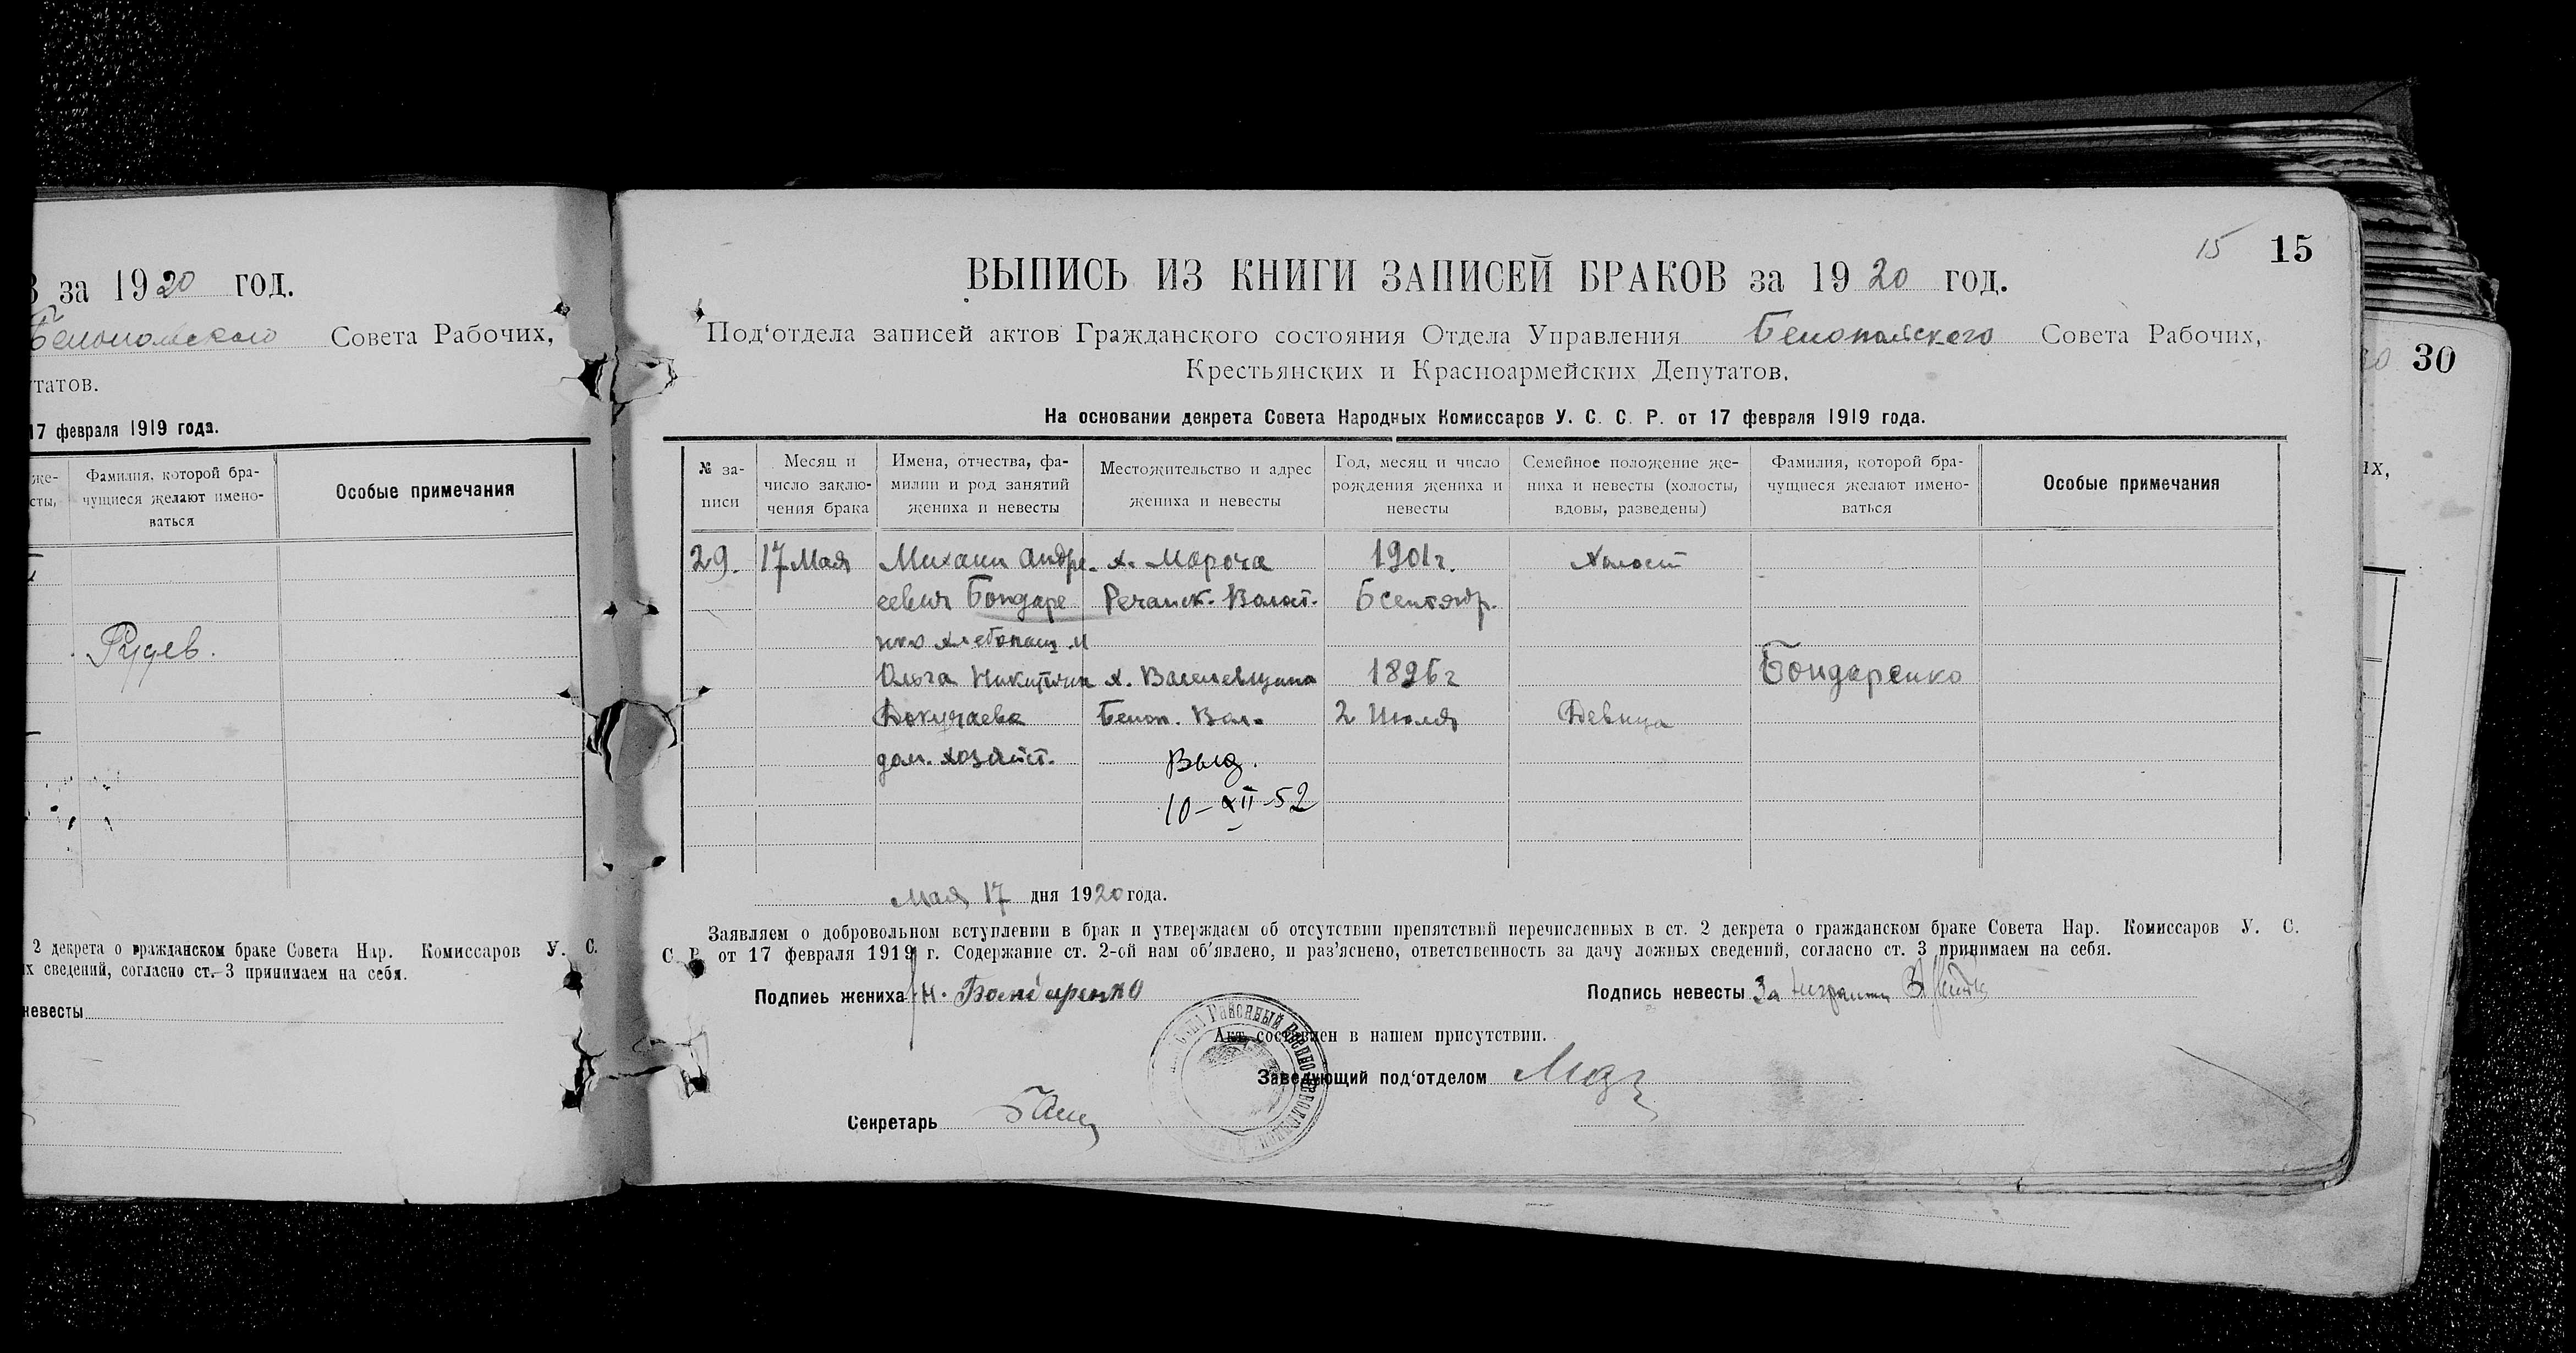 В за 1920 год.
Белопольского Совета Рабочих,
утатов.
17 февраля 1919 года.
же-
сты,
Фамилия, которой бра-
чущиеся желают имено-
ваться
Особые примечания
Рудев.
2 декрета о гражданском браке Совета Нар. Комиссаров У. С.
их сведений, согласно ст. 3 принимаем на себя.
невесты
15 15
ВЫПИСЬ ИЗ КНИГИ ЗАПИСЕЙ БРАКОВ за 1920 год.
Под‘отдела записей актов Гражданского состояния Отдела Управления Белопольского Совета Рабочих,
Крестьянских и Красноармейских Депутатов.
На основании декрета Совета Народных Комиссаров У. С. С. Р. от 17 февраля 1919 года.
№ за-
писи
Месяц и
число заклю-
чения брака
Имена, отчества, фа-
милии и род занятий
жениха и невесты
Местожительство и адрес
жениха и невесты
Год, месяц и число
рождения жениха и
невесты
Семейное положение же-
ниха и невесты (холосты,
вдовы, разведены)
Фамилия, которой бра-
чущиеся желают имено-
ваться
Особые примечания
29. 17 Мая Михаил Андре- х. Мороча 1901 г. Холост
еевич Бондаре Речанск. Волост. 6 сентябр.
нко хлебопаш. и
Ольга Никитична х. Василевщина 1896 г Бондаренко
Докучаева Белоп. Вол. 2 Июля Девица
дом. хозяйст. Выд.
10-XII-52
Мая 17 дня 1920 года.
Заявляем о добровольном вступлении в брак и утверждаем об отсутствии препятствий перечисленных в ст. 2 декрета о гражданском браке Совета Нар. Комиссаров У. С.
С. Р. от 17 февраля 1919 г. Содержание ст. 2-ой нам об‘явлено, и раз‘яснено, ответственность за дачу ложных сведений, согласно ст. 3 принимаем на себя.
Подпись жениха Бондаренко
Подпись невесты За неграмотн
Акт составлен в нашем присутствии.
Заведующий под‘отделом
Секретарь
Районный
30
их,